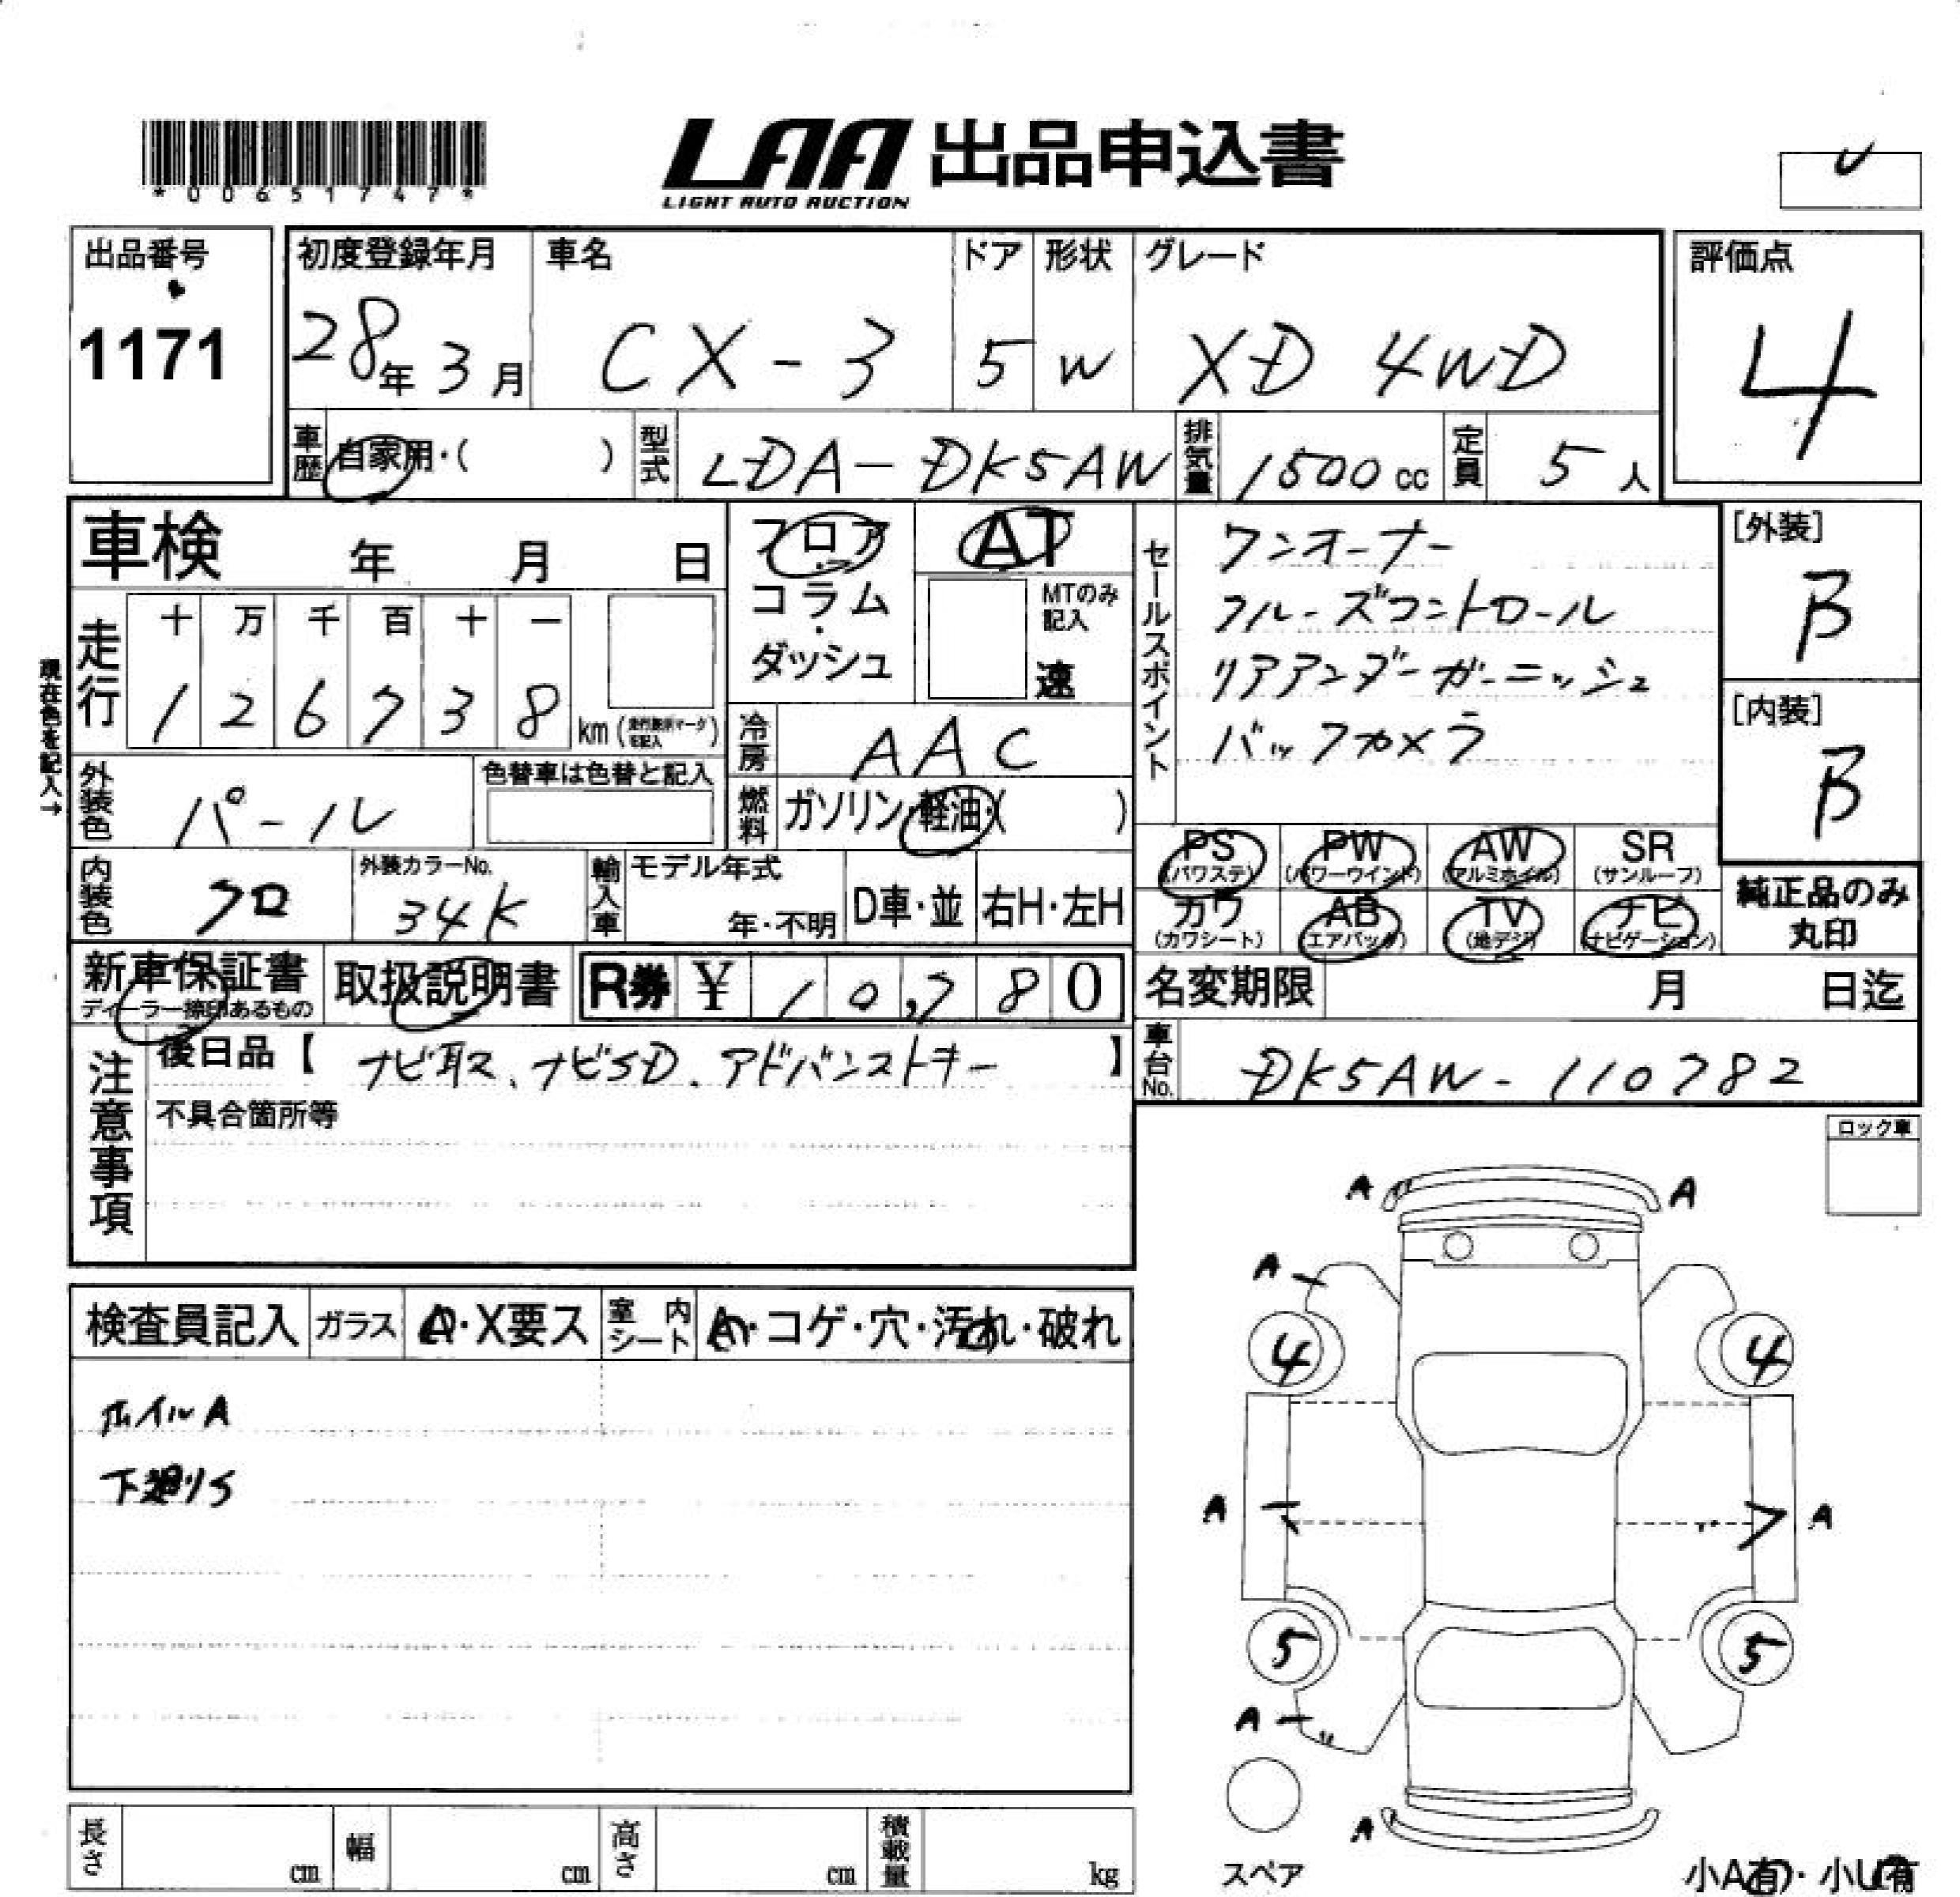 *00651747*
LAA 出品申込書
LIGHT AUTO AUCTION
出品番号
1171
初度登録年月
28年 3月
車名
CX-3
ドア
5
形状
W
グレード
XD 4WD
評価点
4
車歴 自家用・( )
型式 LDA-DK5AW
排気量 1500cc
定員 5人
車検 年 月 日
フロア・コラム・ダッシュ
AT
MTのみ記入
速
セールスポイント
ワンオーナー
クルーズコントロール
リアアンダーガーニッシュ
バックカメラ
[外装]
B
[内装]
B
現在色を記入→
走行
十 万 千 百 十 一
1 2 6 7 3 8 km
冷房 AAC
外装色 パール
色替車は色替と記入
燃料 ガソリン・軽油・( )
内装色 クロ
外装カラーNo.
34K
輸入車 モデル年式
年・不明
D車・並 右H・左H
PS (パワステ) PW (パワーウインド) AW (アルミホイル) SR (サンルーフ)
カワ (カワシート) AB (エアバック) TV (地デジ) ナビ (ナビゲーション)
純正品のみ
丸印
新車保証書
ディーラー捺印あるもの
取扱説明書
R券 ¥ 10,780
名変期限 月 日迄
注意事項
後日品【 ナビ取ス、ナビSD、アドバンストキー 】
不具合箇所等
車台No. DK5AW-110782
ロック車
検査員記入 ガラス A・X要ス 室内シート A・コゲ・穴・汚れ・破れ
ホイルA
下廻りS
A A
A
4 4
A A
5 5
A
A
スペア
長さ cm 幅 cm 高さ cm 積載量 kg
小A有・小U有